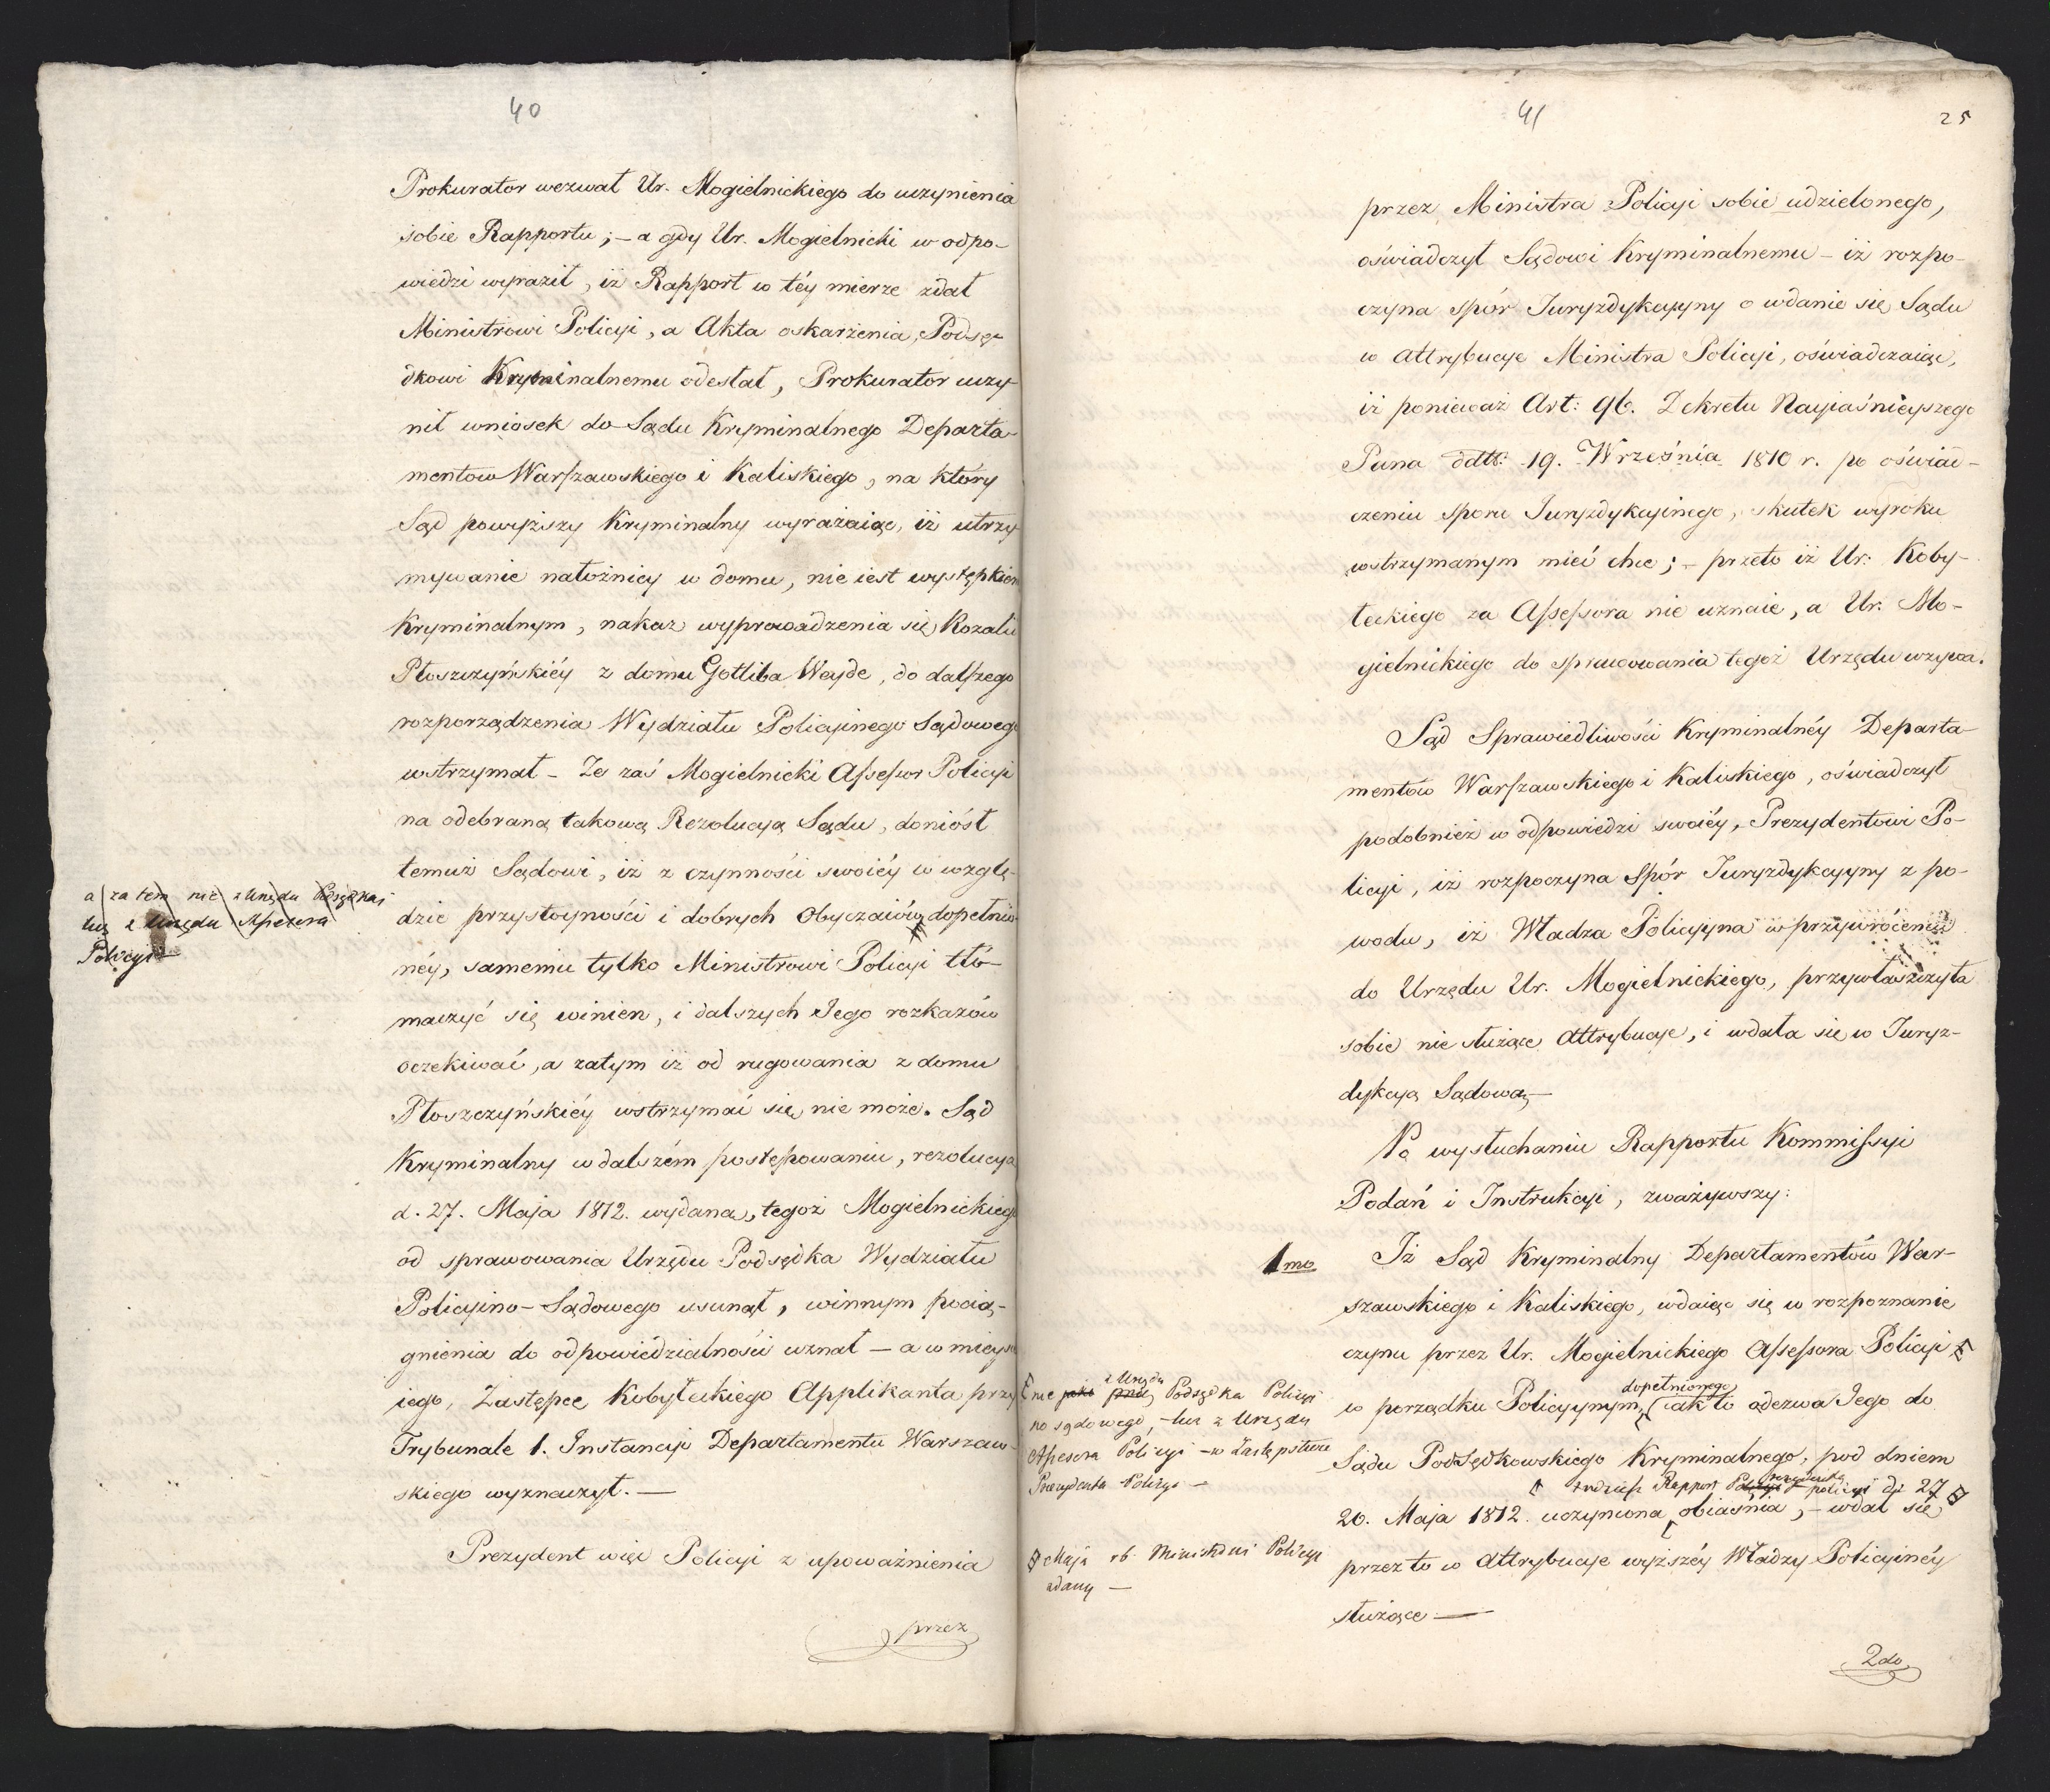 40
Prokurator wezwał Ur. Mogielnickiego do uczynienia
sobie Rapportu; – a gdy Ur. Mogielnicki w odpo-
wiedzi wyraził, iż Rapport w téy mierze zdał
Ministrowi Policyi, a Akta oskarżenia, Podsę-
dkowi Kryminalnemu odesłał, Prokurator uczy-
nił wniosek do Sądu Kryminalnego Departa-
mentow Warszawskiego i Kaliskiego, na który
Sąd powyższy Kryminalny wyrażaiąc, iż utrzy-
mywanie nałożnicy w domu, nie iest występkiem
Kryminalnym, nakaz wyprowadzenia się Rozalii
Płoszczyńskiéy z domu Gotliba Weyde, do dalszego
rozporządzenia Wydziału Policyinego Sądowego
wstrzymał – Że zaś Mogielnicki Assessor Policyi
na odebraną takową Rezolucyą Sądu, doniósł
temuż Sądowi, iż z czynności swoiéy w wzglę-
a zatem nie z Urzędu Podsędka
dzie przystoyności i dobrych Obyczaiów dopełnio-
lecz z Urzędu Assessora
néy, samemu tylko Ministrowi Policyi tłó-
Policyi
maczyć się winien, i dalszych Jego rozkazów
oczekiwać, a zatym iż od rugowania z domu
Płoszczyńskiéy wstrzymać się nie może. Sąd
Kryminalny w dalszém postępowaniu, rezolucyą
d. 27. Maja 1812. wydaną, tegoż Mogielnickiego
od sprawowania Urzędu Podsędka Wydziału
Policyino-Sądowego usunął, winnym pocią-
gnienia do odpowiedzialności uznał – a w mieysce
iego, Zastępcę Kobyłeckiego Applikanta przy
Trybunale 1. Instancyi Departamentu Warszaw-
skiego wyznaczył. –
Prezydent więc Policyi z upoważnienia
przez
41
25
przez Ministra Policyi sobie udzielonego,
oświadczył Sądowi Kryminalnemu – iż rozpo-
czyna spór Juryzdykcyyny o wdanie się Sądu
w attrybucye Ministra Policyi, oświadczaiąc,
iż ponieważ Art: 96. Dekretu Nayiaśnieyszego
Pana ddtt: 19. Września 1810 r. po oświad-
czeniu sporu Juryzdykcyinego, skutek wyroku
wstrzymanym mieć chce; – przeto iż Ur: Koby-
łeckiego za Assessora nie uznaie, a Ur. Mo-
gielnickiego do sprawowania tegoż Urzędu wzywa.
Sąd Sprawiedliwości Kryminalnéy Departa-
mentów Warszawskiego i Kaliskiego, oświadczył
podobnież w odpowiedzi swoiéy, Prezydentowi Po-
licyi, iż rozpoczyna Spór Juryzdykcyyny z po-
wodu, iż Władza Policyyna w przywróceniu
do Urzędu Ur. Mogielnickiego, przywłaszczyła
sobie nie służące attrybucye, i wdała się w Juryz-
dykcyą Sądową. –
Po wysłuchaniu Rapportu Kommissyi
Podań i Instrukcyi, zważywszy:
1mo Iż Sąd Kryminalny Departamentów War-
szawskiego i Kaliskiego, wdaiąc się w rozpoznanie
czynu przez Ur. Mogielnickiego Assessora Policyi
nie z Urzędu Podsędka Policyi
no sądowego, – lecz z Urzędu
Assesora Policyi – w Zastępstwie
Prezydenta Policyi –
dopełnionego
w porządku Policyynym, (iak to odezwa Jego do
Sądu Podsędkowskiego Kryminalnego, pod dniem
tudzież Rapport Prezydenta policyi d: 27
20. Maja 1812. uczyniona obiaśnia, – wdał się
Maja rb. Ministrowi Policyi
zdany –
przez to w attrybucye wyższéy Władzy Policyinéy
służące –
2do